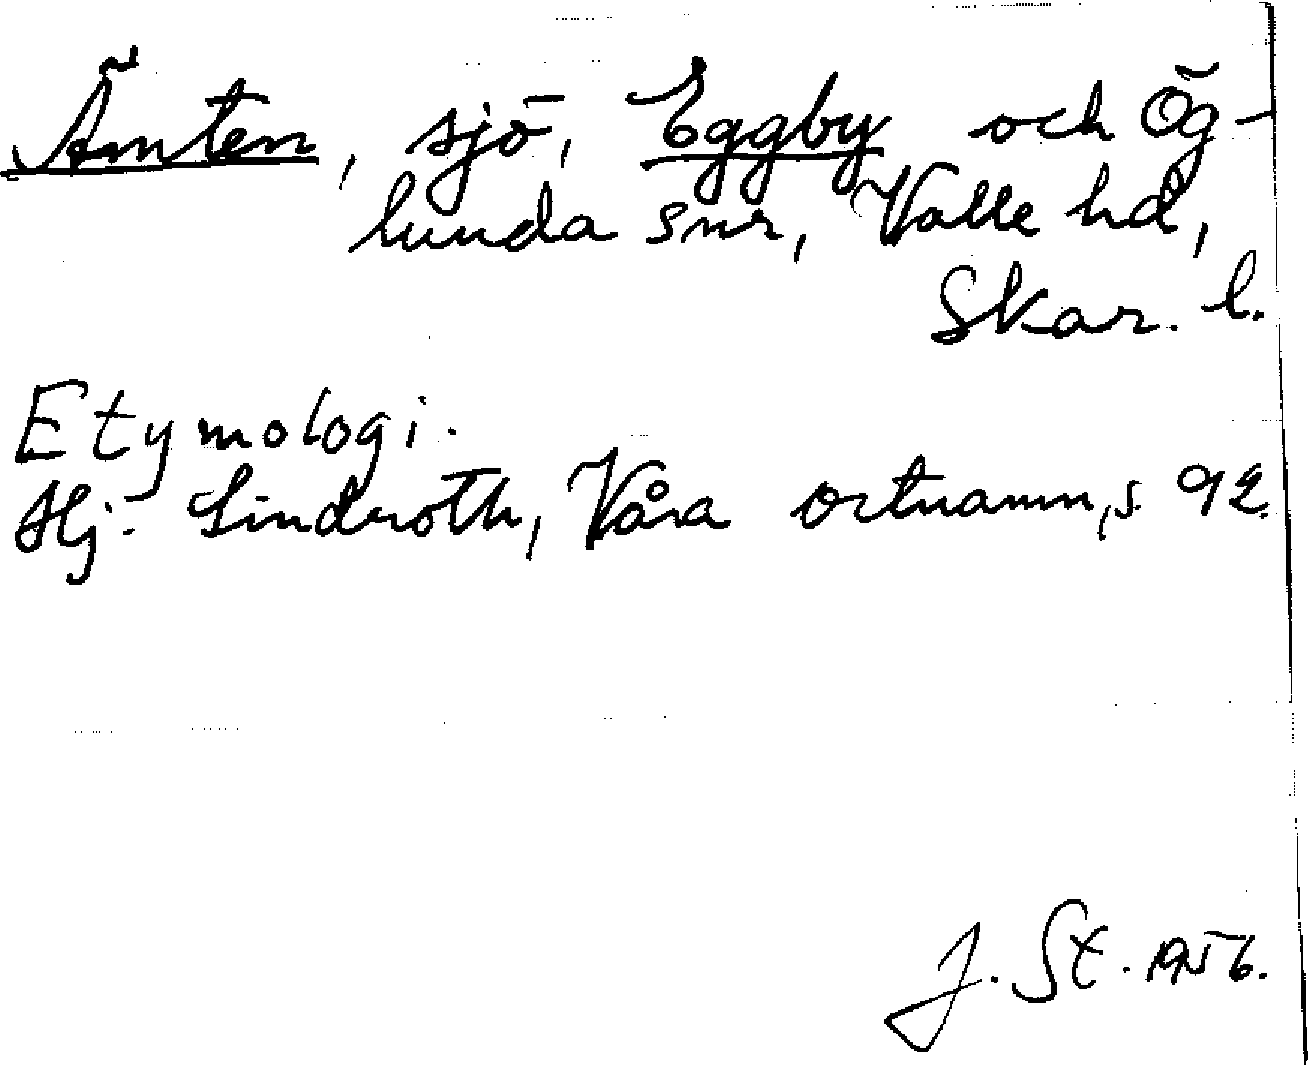 Ämten, sjö, Eggby och Ög-
lunda snr, Valle hd,
Skar. l.
Etymologi.
Hj. Lindroth, Våra ortnamn, s. 92.
J. St. 1956.